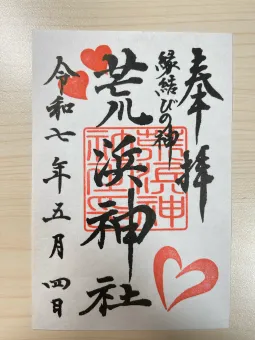 奉拝
縁結びの神
荒浜神社
令和七年五月四日